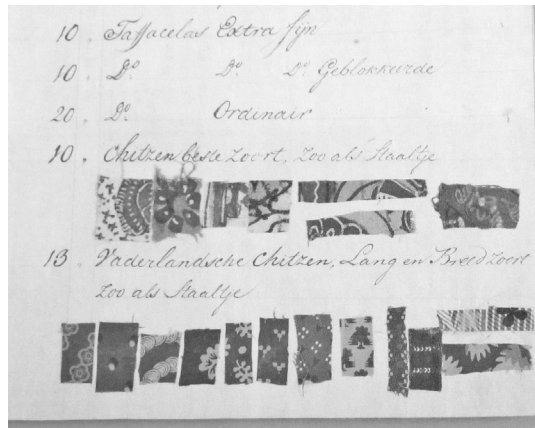 10. Taffacelas Extra fijn
10. Do Do Do Geblokkeerde
20. Do Ordinair
10. Chitzen beste zoort, zoo als Staaltje
13. Vaderlandsche Chitzen, Lang en Breed zoort
zoo als Staaltje